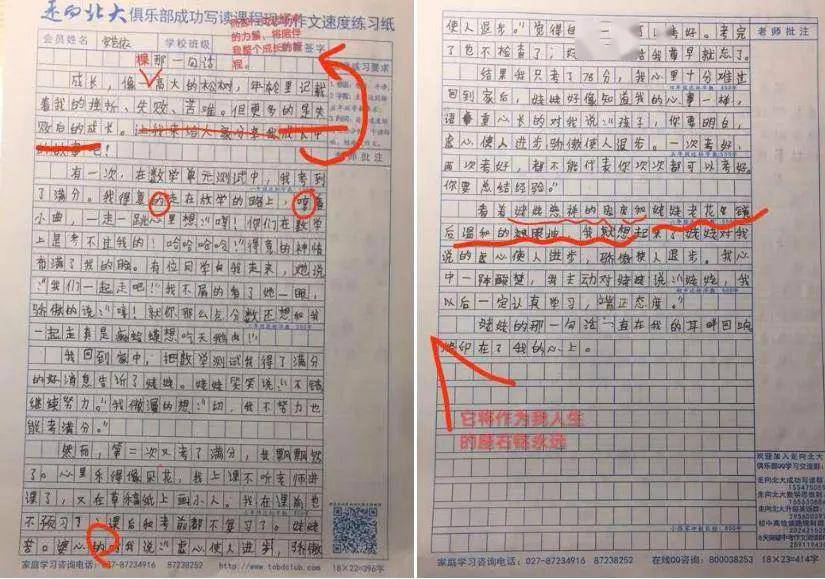 走向北大俱乐部成功写读课程现场作文速度练习纸
会员姓名
学校班级
签字
的力量、将陪伴
我整个成长的旅
程。
那一句话
棵
成长，像高大的松树，年轮里记载
着我的挫折、失败、苦难。但更多的是失
败后的成长。
吧！
老师批注
有一次，在数学单元测试中，我考到
了满分。我得意的走在放学的路上，哼着
小曲，一走一跳心里想：“嘿！你们在数学
上是考不过我的！哈哈哈哈！”得意的神情
布满了我的脸。有位同学向我走来，她说
：“我们一起走吧！”我不屑的看了她一眼，
骄傲的说：“嘿！就你那么点分数还想和我
一起走真是癞蛤蟆想吃天鹅肉！”
我回到家中，把数学测试我得了满分
的好消息告诉了姥姥。姥姥笑笑说：“不错
继续努力。”我傲慢的想：“切，我不努力也
能考满分。”
然而，第二次又考了满分，我飘飘然
了。心里乐得像朵花，我上课不听老师讲
课了，又在草稿纸上画小人。我在课前也
不预习了，课后和考前都不复习了。姥姥
苦口婆心的对我说：“虚心使人进步，骄傲
家庭学习咨询电话：027-87234916 87238252 http://www.tobdclub.com 18×22=396字
使人退步。”觉得自
了！考好。考完
了也不检查了；
早就忘了。
结果我只考了78分，我心里十分难过
回到家后，姥姥好像知道我的心事一样，
语重心长的对我说：“孩子，你要明白，
虚心使人进步骄傲使人退步。一次考好，
两次考好，都不能代表你次次都可以考好。
你要总结经验。”
看着姥姥慈祥的面容和姥姥老花眼镜
后温和的眼神，我就想起来了姥姥对我
说的虚心使人进步，骄傲使人退步。我心
中一阵醒楚，我主动对姥姥说：“姥姥，我
以后一定认真学习，端正态度。”
姥姥的那一句话一直在我的耳畔回响
烙印在了我的心上。
它将作为我人生
的座右铭永远
老师批注
欢迎加入走向北大
俱乐部QQ学习交流群:
家庭学习咨询电话：027-87234916 87238252 在线QQ咨询：800038253 18×23=414字